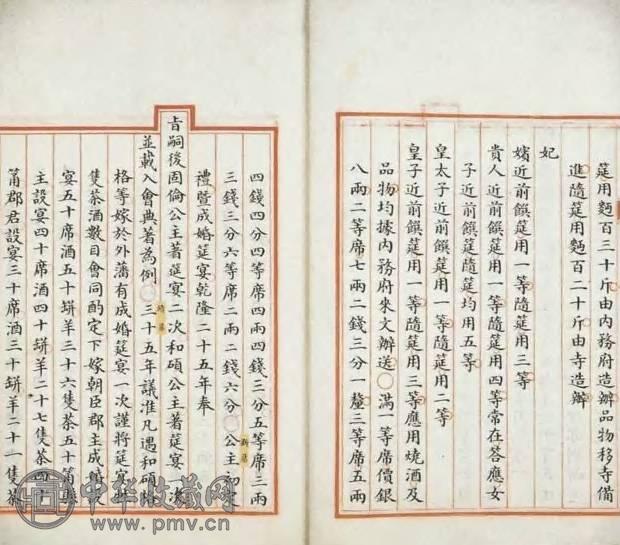 筵用麵百三十斤由內務府造辦品物移寺備
進隨筵用麵百二十斤由寺造辦
妃
嬪近前饌筵用一等隨筵用三等
貴人近前饌筵用一等隨筵用四等常在答應女
子近前饌筵隨筵均用五等
皇太子近前饌筵用一等隨筵用二等
皇子近前饌筵用一等隨筵用三等應用燒酒及
品物均據內務府來文辦送 滿一等席價銀
八兩二等席七兩二錢三分一釐三等席五兩
四錢四分四等席四兩四錢三分五等席三兩
三錢三分六等席二兩二錢六分 公主初
禮暨成婚筵宴乾隆二十五年奉
旨嗣後固倫公主著筵宴二次和碩公主著筵宴一次
並載入會典著為例 三十五年議准凡遇和碩
格等嫁於外藩有成婚筵宴一次謹將筵宴
隻茶酒數目會同酌定下嫁朝臣郡主成婚
宴五十席酒五十缾羊三十六隻茶五十筩縣
主設宴四十席酒四十缾羊二十七隻茶四十
筩郡君設宴三十席酒三十缾羊二十一隻茶
中华收藏网
www.pmv.cn